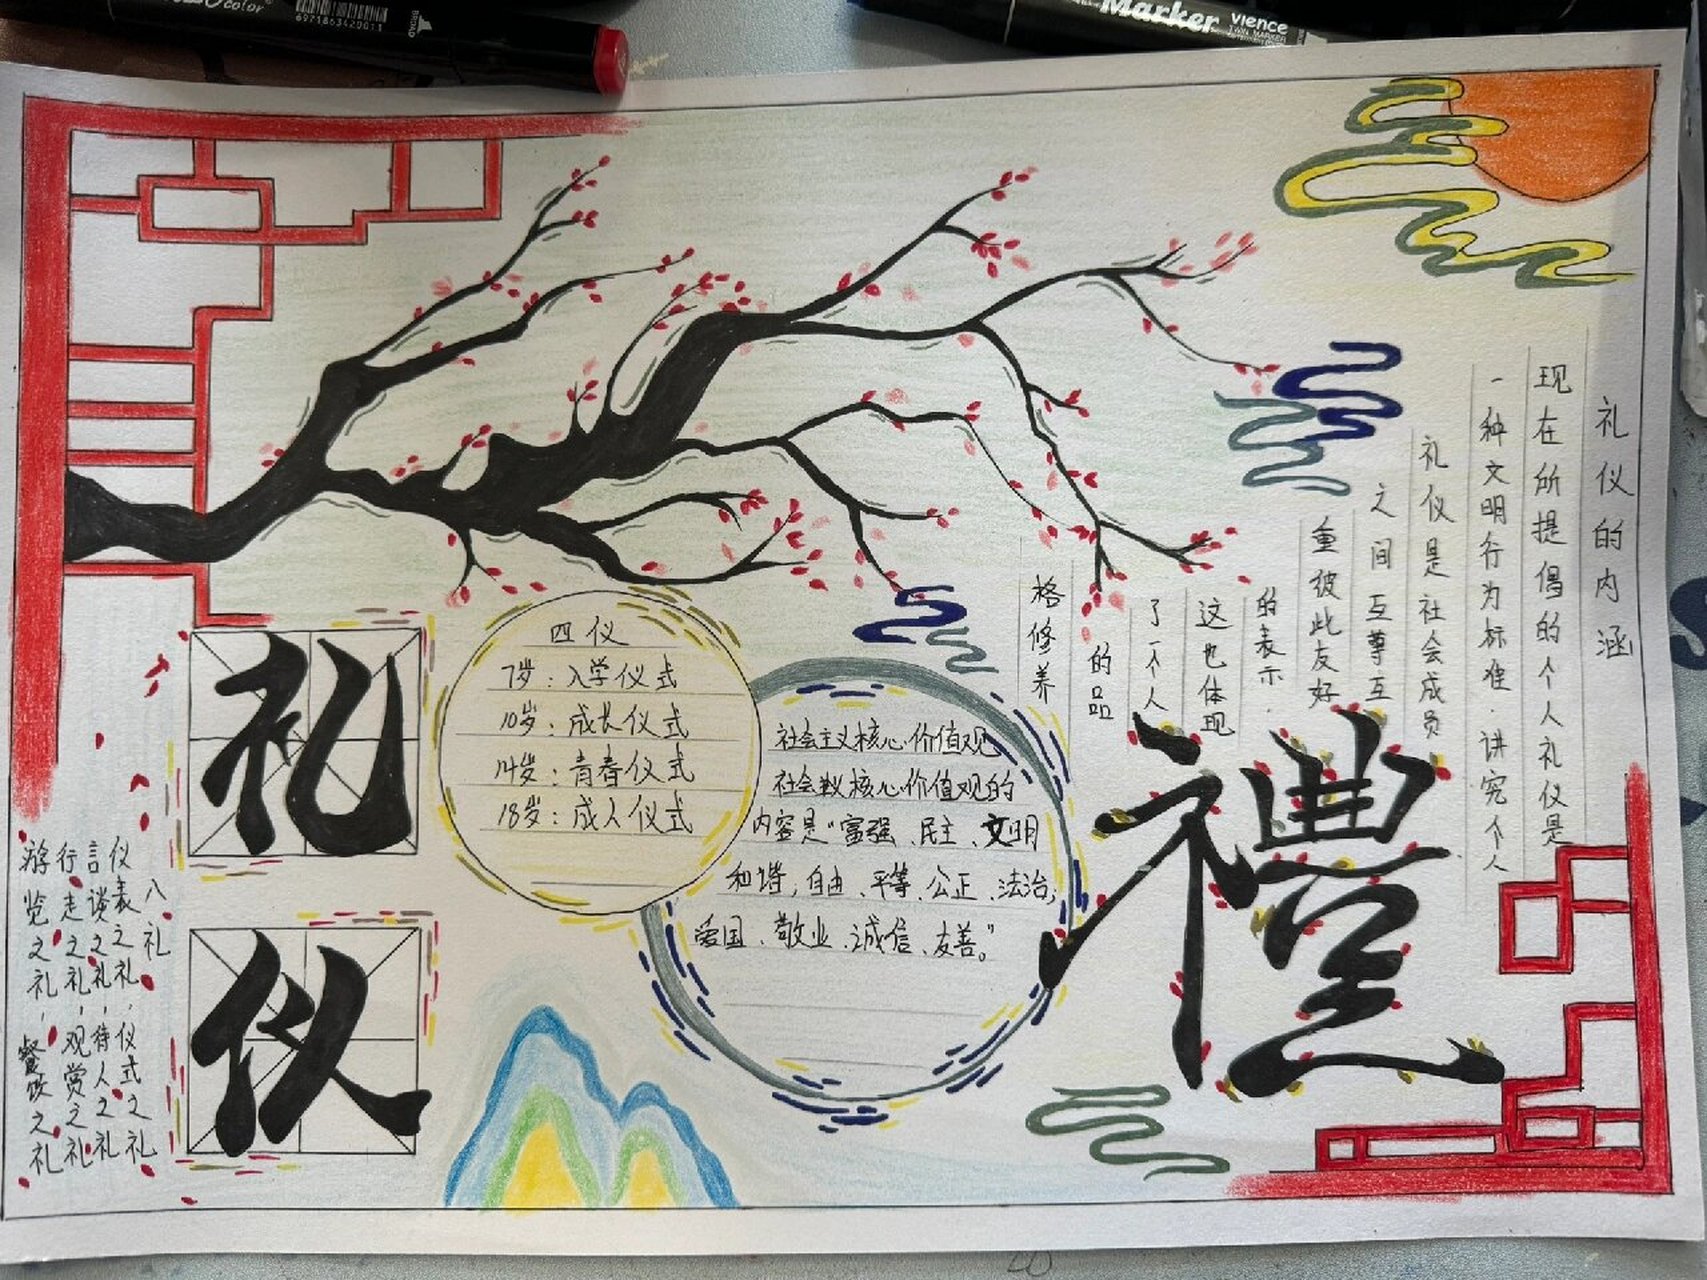 color
6971863420011
BROAD
Marker
vience
TWIN MARKER
礼
仪
四仪
7岁：入学仪式
10岁：成长仪式
14岁：青春仪式
18岁：成人仪式
社会主义核心价值观
社会主义核心价值观的
内容是“富强、民主、文明
和谐，自由、平等、公正、法治，
爱国、敬业、诚信、友善。”
礼仪的内涵
现在所提倡的个人礼仪是
一种文明行为标准．讲究个人
礼仪是社会成员
之间互尊互
重彼此友好
的表示．
这也体现
了一个人
的品
格修养
禮
八礼
仪表之礼，仪式之礼
言谈之礼，待人之礼
行走之礼，观赏之礼
游览之礼，餐饮之礼